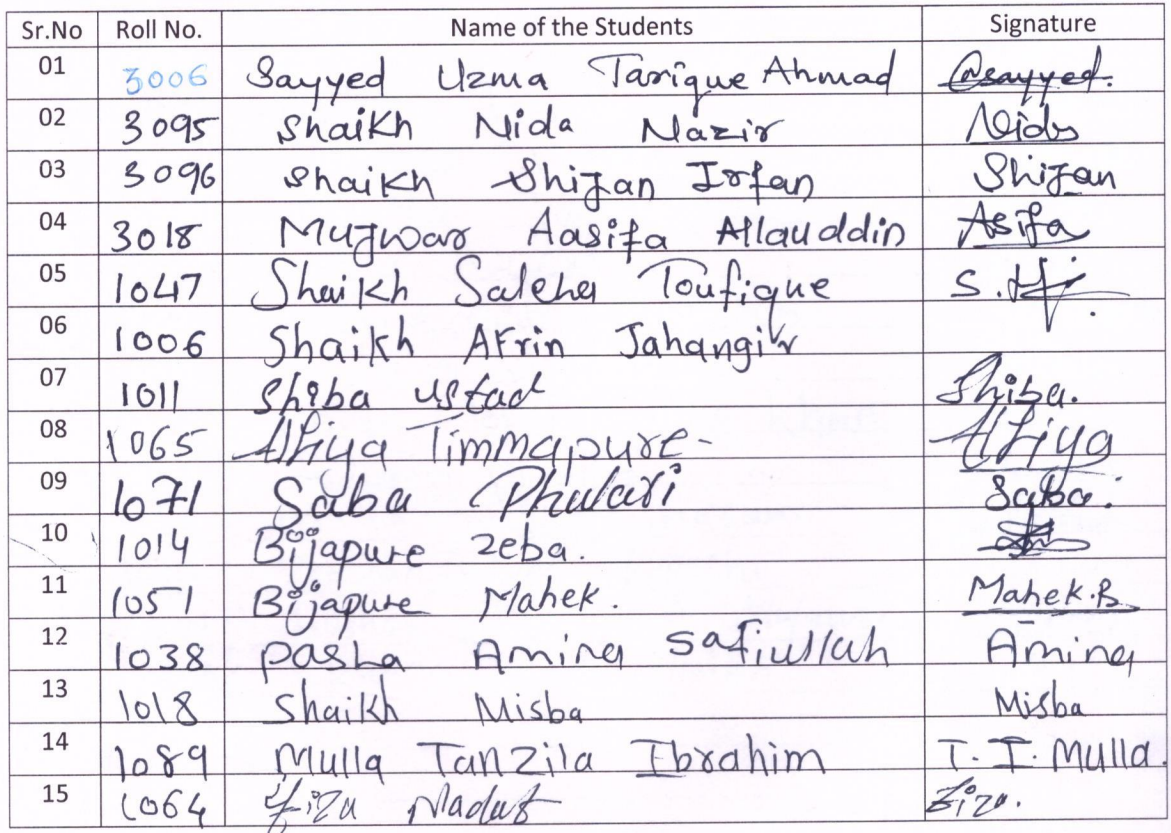 Sr.No Roll No. Name of the Students Signature
01 3006 Sayyed Uzma Tarique Ahmad @sayyed.
02 3095 Shaikh Nida Nazir Nida
03 3096 Shaikh Shifan Irfan Shifan
04 3018 Mujwar Aasifa Allauddin Asifa
05 1047 Shaikh Saleha Toufique S.
06 1006 Shaikh Afrin Jahangir
07 1011 Shiba Ustad Shiba.
08 1065 Afiya Timmapure - Afiya
09 1071 Saba Phulari Saba.
10 1014 Bijapure Zeba.
11 1051 Bijapure Mahek. Mahek.B
12 1038 Pasha Amina Safiullah Amina
13 1018 Shaikh Misba Misba
14 1089 Mulla Tanzila Ibrahim T. I. Mulla.
15 1064 Fiza Fiza.